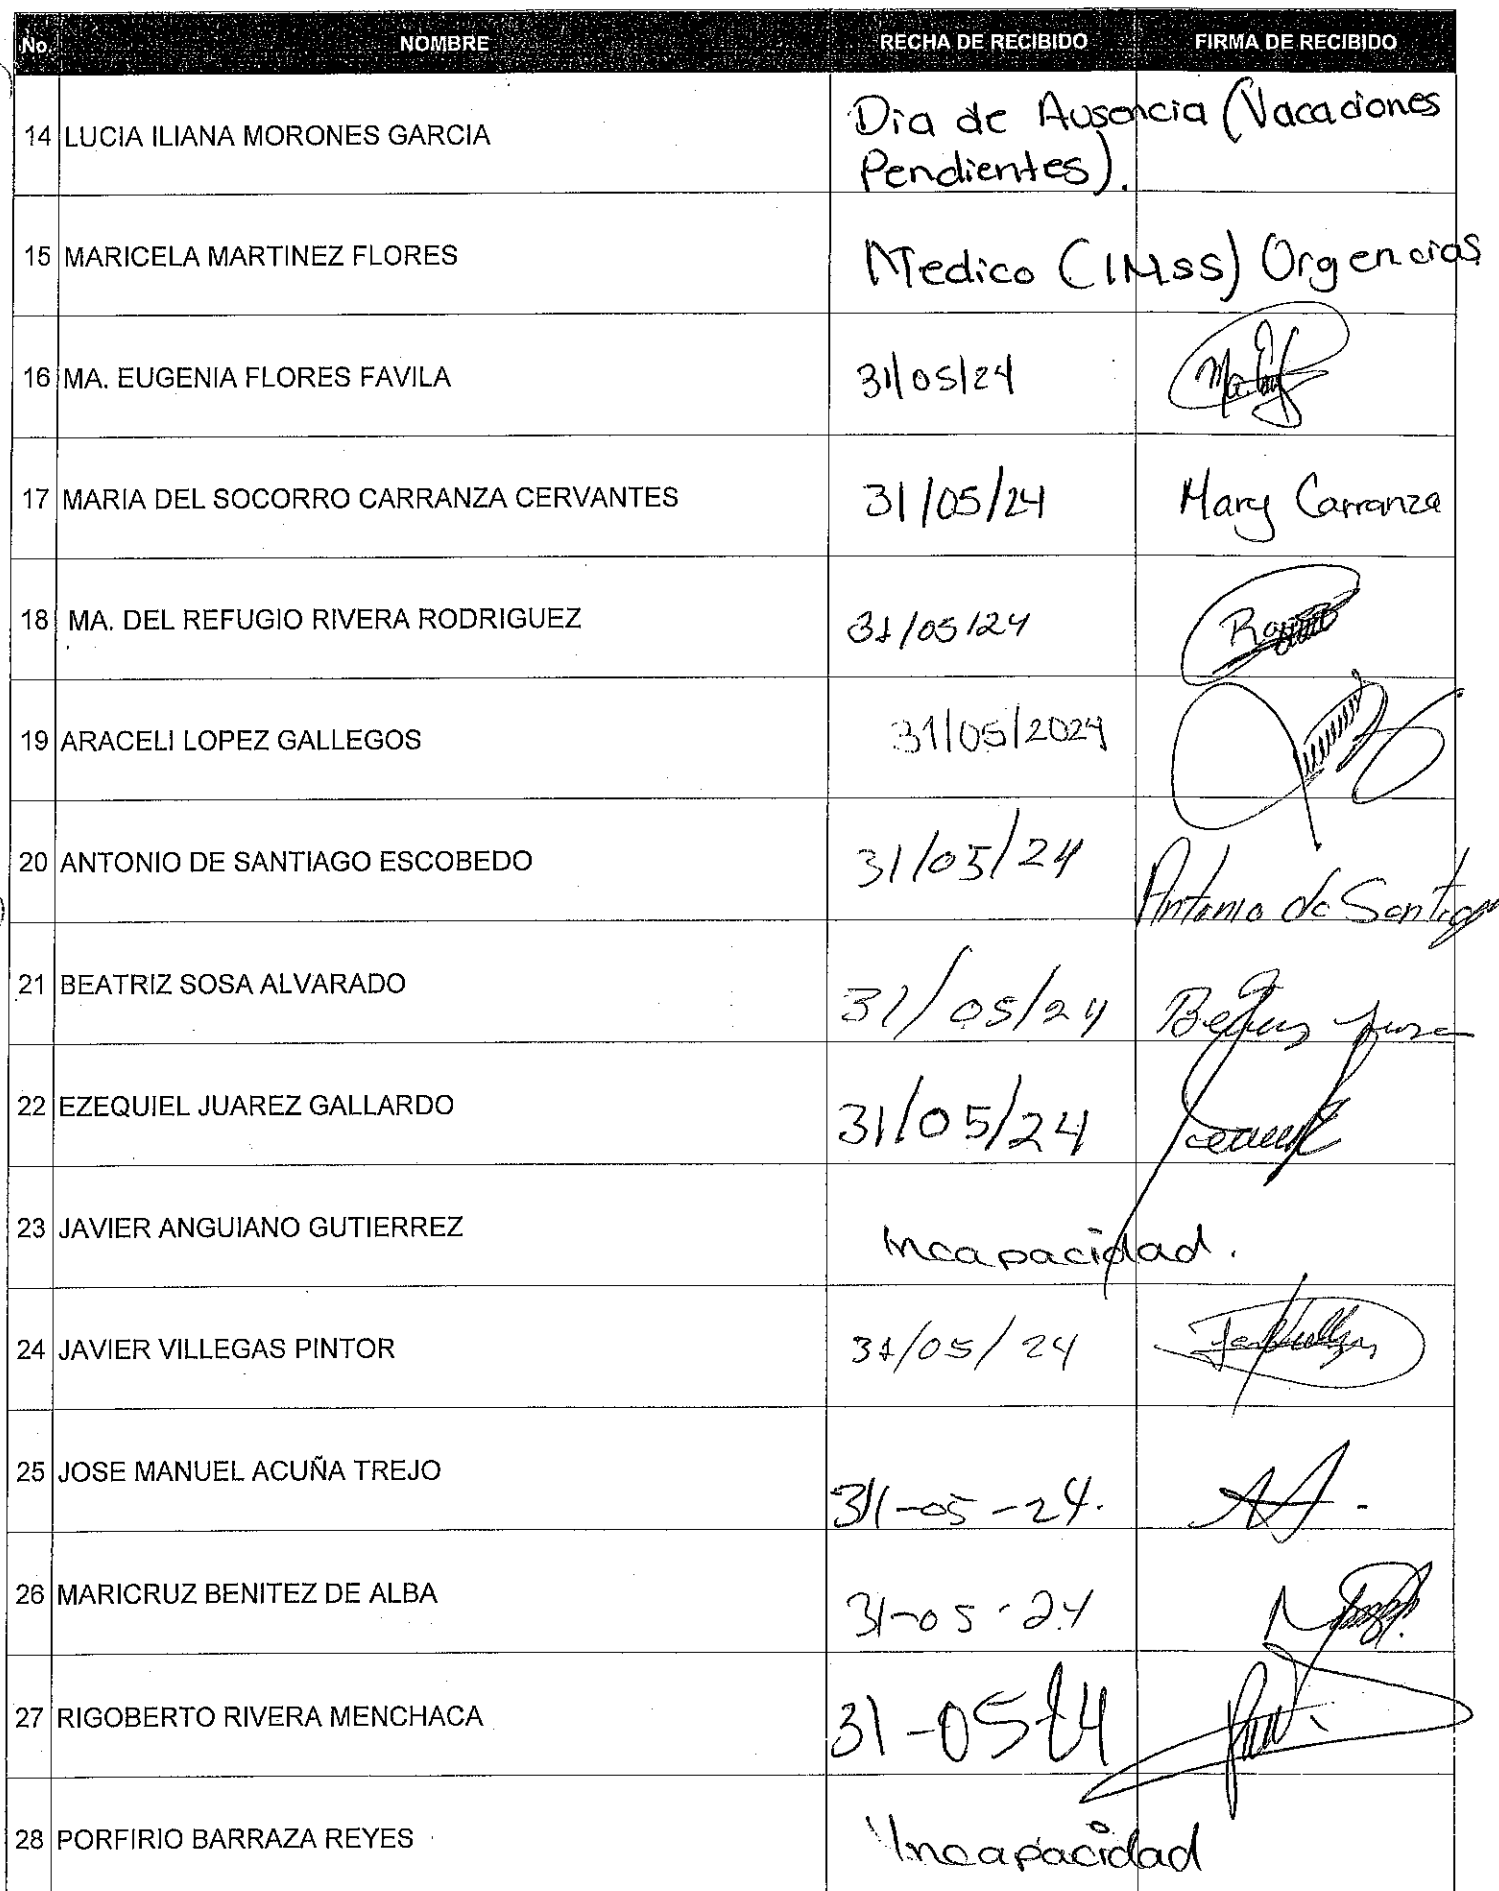 No. NOMBRE RECHA DE RECIBIDO FIRMA DE RECIBIDO
14 LUCIA ILIANA MORONES GARCIA Dia de Ausencia (Vacaciones
Pendientes).
15 MARICELA MARTINEZ FLORES Medico (IMSS) Urgencias
16 MA. EUGENIA FLORES FAVILA 31/05/24
17 MARIA DEL SOCORRO CARRANZA CERVANTES 31/05/24 Mary Carranza
18 MA. DEL REFUGIO RIVERA RODRIGUEZ 31/05/24
19 ARACELI LOPEZ GALLEGOS 31/05/2024
20 ANTONIO DE SANTIAGO ESCOBEDO 31/05/24 Antonio de Santiago
21 BEATRIZ SOSA ALVARADO 31/05/24
22 EZEQUIEL JUAREZ GALLARDO 31/05/24
23 JAVIER ANGUIANO GUTIERREZ Incapacidad.
24 JAVIER VILLEGAS PINTOR 31/05/24
25 JOSE MANUEL ACUÑA TREJO 31-05-24.
26 MARICRUZ BENITEZ DE ALBA 31-05-24
27 RIGOBERTO RIVERA MENCHACA 31-05-24
28 PORFIRIO BARRAZA REYES Incapacidad